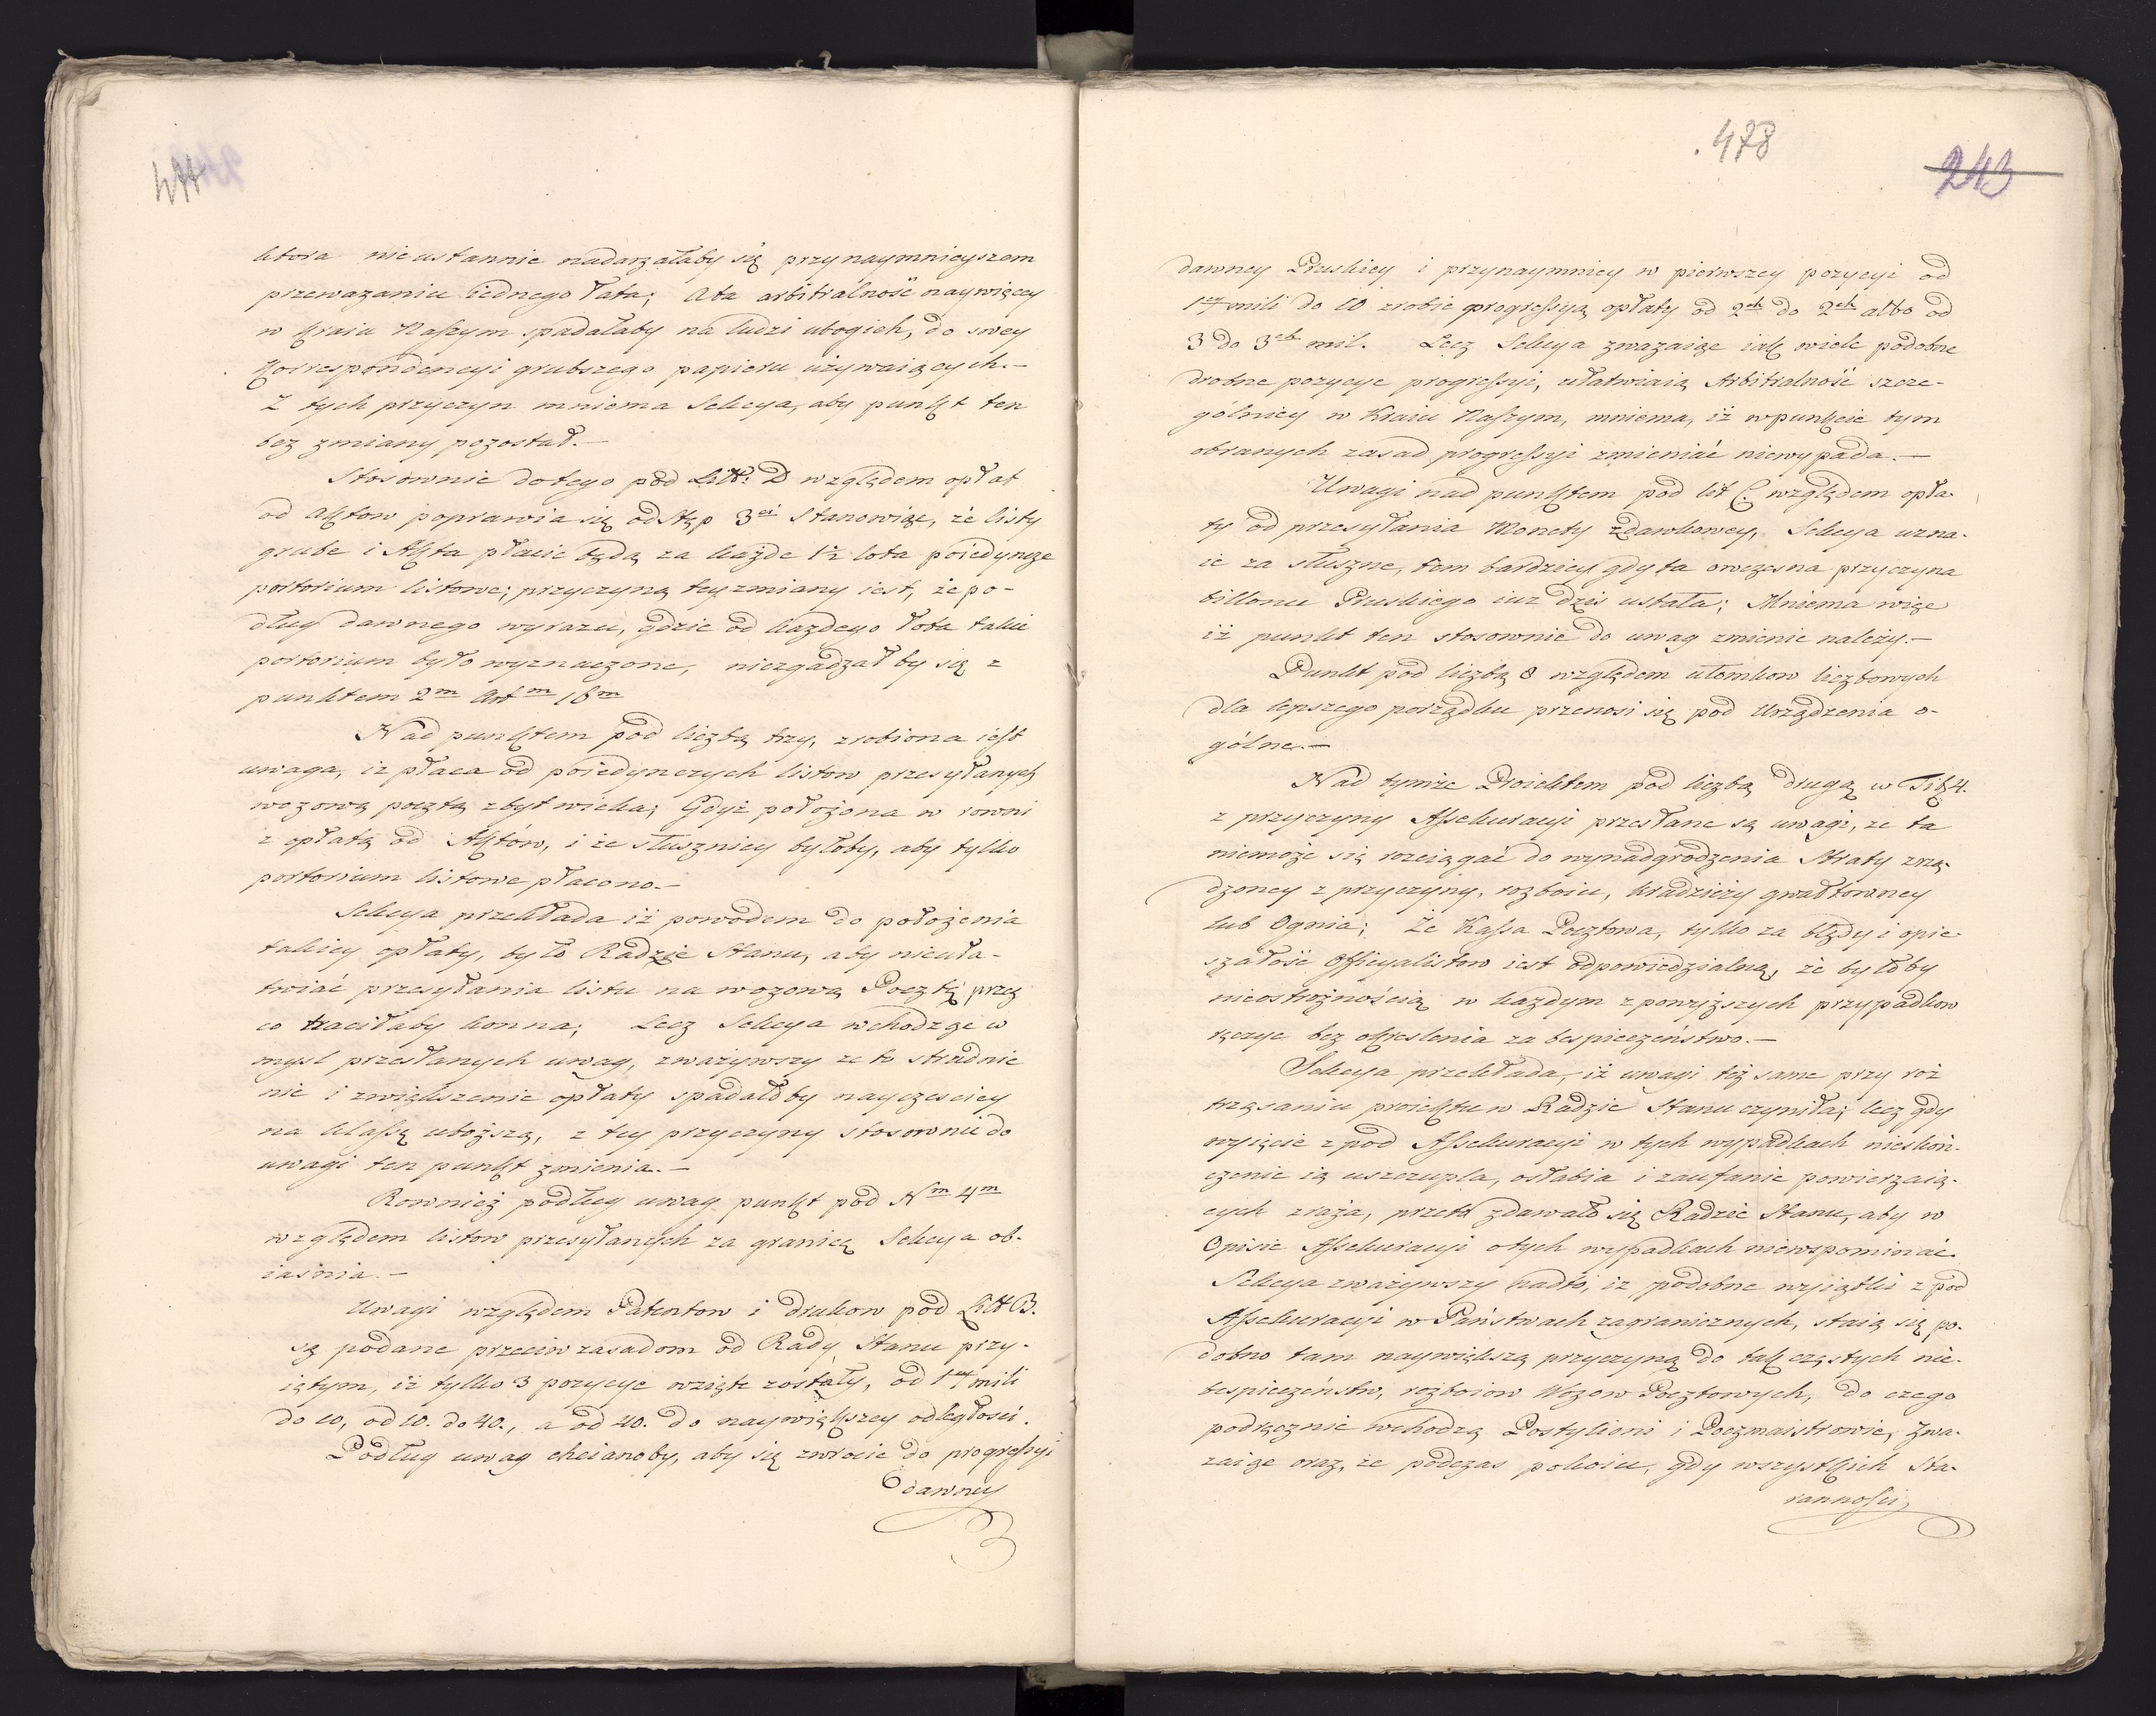 477
ktora nieustannie nadarzałaby się przy naymnieyszem
przewazaniu iednego łuta; A ta arbitralność naywięcey
w Kraiu Naszym spadałaby na ludzi ubogich, do swey
Korrespondencyi grubszego papieru używaiących.—
Z tych przyczyn mniema Sekcya, aby punkt ten
bez zmiany pozostał.—
Stosownie do tego pod Litt: D względem opłat
od Aktow poprawia się odstęp 3ci Stanowiąc, że listy
grube i Akta płacic będą za każde 1½ łota poiedyncze
portorium listowe; przyczyną tey zmiany iest, że po-
dług dawnego wyrazu, gdzie od każdego łota takie
portorium było wyznaczone, niezgadzał by się z
punktem 2m Art m 18m
Nad punktem pod liczbą trzy, zrobiona iest
uwaga, iz płaca od poiedynczych listow przesyłanych
wozową pocztą zbyt wielka; Gdyż położona w rowni
z opłatą od Aktów, i że słuszniey byłoby, aby tylko
portorium listowe płacono.—
Sekcya przekłada iż powodem do położenia
takiey opłaty, było Radzie Stanu, aby nieuła-
twiać przesyłania listu na wozową Pocztę przez
co traciłaby konna; Lecz Sekcya wchodząc w
mysl przesłanych uwag, zważywszy ze to strudnie
nie i zwiększenie opłaty spadałoby nayczesciey
na klassę uboższą, z tey przyczyny stosownie do
uwagi ten punkt zmienia.—
Rownież podług uwag punkt pod N m 4m
względem listow przesyłanych za granicę Sekcya ob-
iasnia.—
Uwagi względem Patentow i drukow pod Litt B.
są podane przeciw zasadom od Rady Stanu przy-
iętym, iż tylko 3 pozycye wzięte zostały, od 1ey mili
do 10, od 10. do 40., a od 40. do naywiększey odległosci.
Podług uwag chcianoby, aby się zwrocic do progressyi
dawney
478
243
dawney Pruskiey i przynaymniey w pierwszey pozycyi od
1ey mili do 10 zrobic progressyą opłaty od 2ch do 2ch albo od
3 do 3ch mil. Lecz Sekcya zwazaiąc iak wiele podobne
drobne pozycye progressyi, ułatwiaią Arbitralność szcze-
gólniey w Kraiu Naszym, mniema, iż w punkcie tym
obranych zasad progressyi zmieniać niewypada.—
Uwagi nad punktem pod lit C. względem opła-
ty od przesyłania Monety zdawkowey, Sekcya uzna-
ie za słuszne, tem bardziey gdy ta owczesna przyczyna
billonu Pruskiego iuz dziś ustała; Mniema więc
iż punkt ten stosownie do uwag zmienic należy.—
Punkt pod liczbą 8 względem ułomkow liczbowych
dla lepszego porządku przenosi się pod Urządzenia o-
gólne.—
Nad tymże Proiektem pod liczbą drugą w Tit 4.
z przyczyny Assekuracyi przesłane są uwagi, ze ta
niemoże się rozciągać do wynadgrodzenia Straty zrzą-
dzoney z przyczyny, rozboiu, kradzieży gwałtowney
lub Ognia; Że Kassa Pocztowa, tylko za błędy i opie-
szałość Officyalistow iest odpowiedzialną, że byłoby
nieostrożnością w każdym z powyższych przypadkow
ręczyc bez okreslenia za bespieczeństwo.—
Sekcya przekłada, iż uwagi też same przy roz
trząsaniu proiektu w Radzie Stanu czyniła; lecz gdy
wyięcie z pod Assekuracyi w tych wypadkach nieskoń-
czenie ią uszczupla, osłabia i zaufanie powierzaią-
cych zraża, przeto zdawało się Radzie Stanu, aby w
Opisie Assekuracyi o tych wypadkach niewspominać.
Sekcya zważywszy nadto, iz podobne wyiątki z pod
Assekuracyi w Państwach zagranicznych, staią się po-
dobno tam naywiększą przyczyną do tak częstych nie-
bespieczeństw, rozboiow Wozow Pocztowych, do czego
podręcznie wchodzą Postylioni i Poczmaistrowie, Zwa-
zaiąc oraz, ze podczas pokoiu, gdy wszystkich sta-
rannosci,